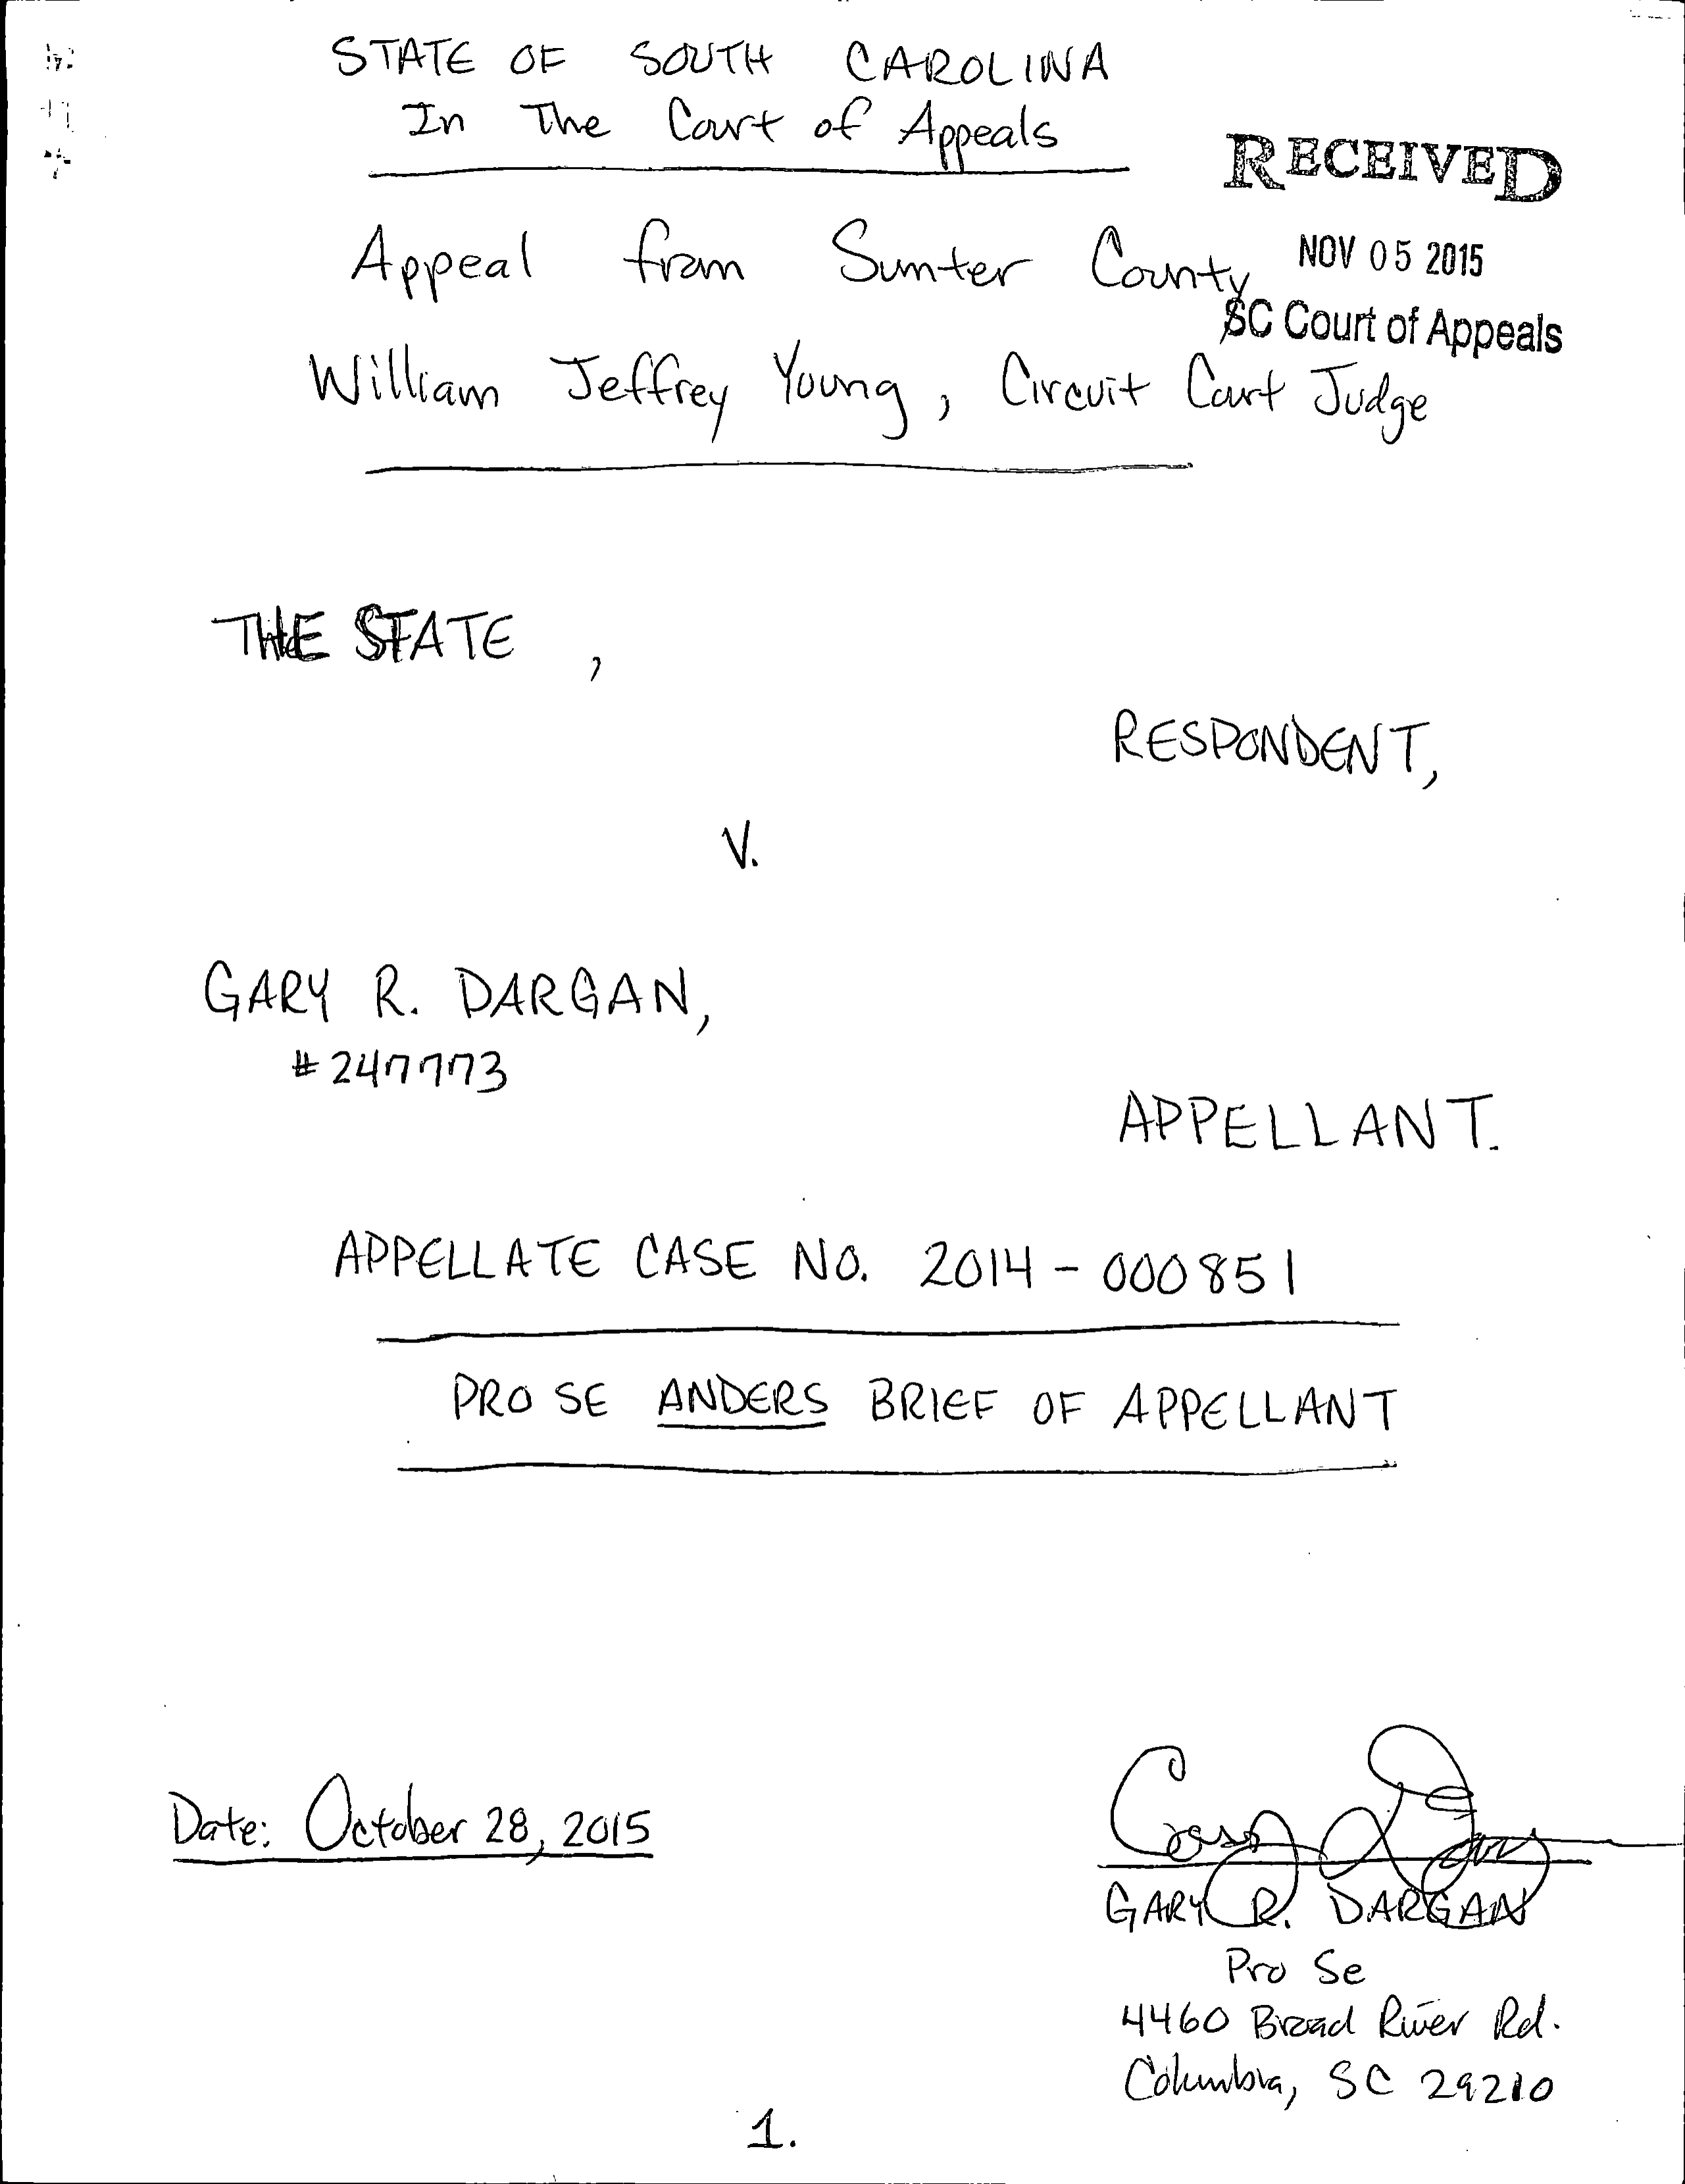 STATE OF SOUTH CAROLINA
In The Court of Appeals
RECEIVED
Appeal from Sumter County
NOV 05 2015
SC Court of Appeals
William Jeffrey Young, Circuit Court Judge
THE STATE,
RESPONDENT,
V.
GARY R. DARGAN,
#247773
APPELLANT.
APPELLATE CASE NO. 2014-000851
PRO SE ANDERS BRIEF OF APPELLANT
Date: October 28, 2015
GARY R. DARGAN
Pro Se
4460 Broad River Rd.
Columbia, SC 29210
1.